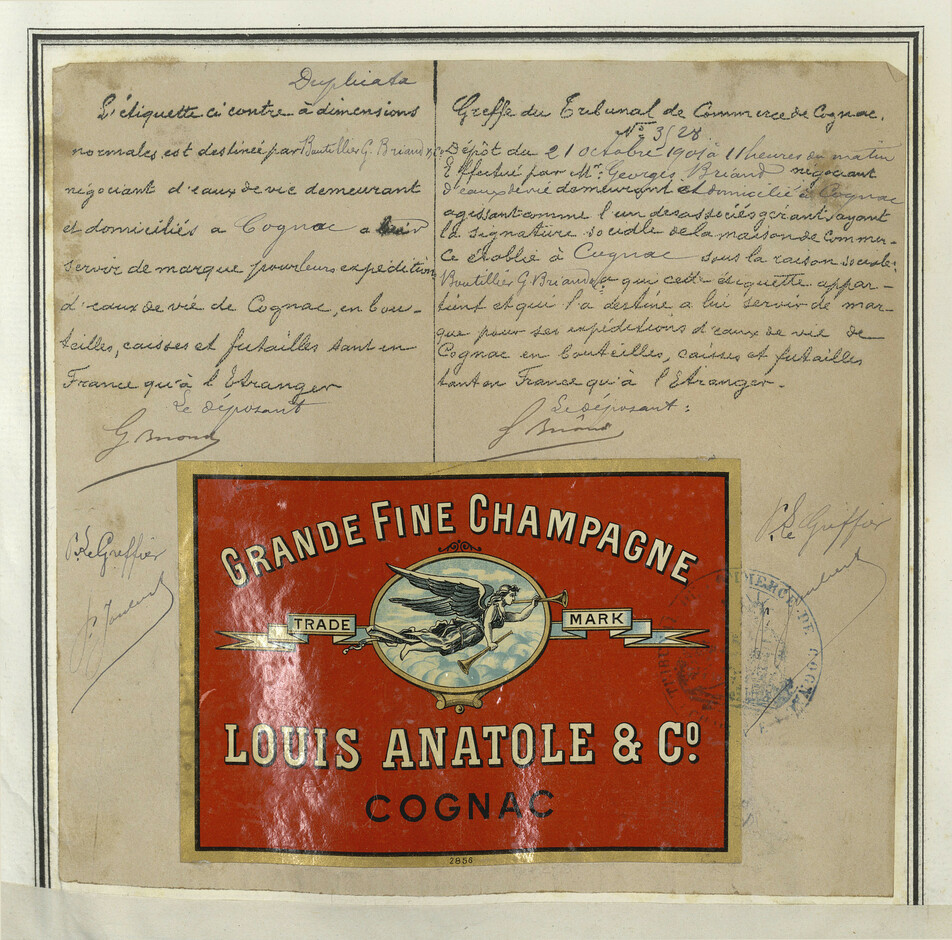 Duplicata
L'étiquette ci contre à dimensions
normales est destinée par Boutillier G. Briand & Co
négociant d'eaux de vie demeurant
et domiciliés a Cognac a
servir de marque pour leurs expéditions
d'eaux de vie de Cognac, en bou-
teilles, caisses et futailles tant en
France qu'à l'Etranger
Le déposant
G Briand
P. Le Greffier
Greffe du Tribunal de Commerce de Cognac.
No 3528
Dépôt du 21 octobre 1901 à 11 heures du matin
Effectué par Mr. Georges Briand négociant
d'eaux de vie demeurant et domicilié à Cognac
agissant comme l'un des associés gérant, ayant
la signature sociale de la maison de Commer-
ce établie à Cognac sous la raison sociale:
Boutillier G Briand & a qui cette étiquette appar-
tient et qui l'a destine a lui servir de mar-
que pour ses expéditions d'eaux de vie de
Cognac en bouteilles, caisses et futailles
tant en France qu'à l'Etranger.
Le déposant:
G Briand
P. Le Greffier
GRANDE FINE CHAMPAGNE
TRADE MARK
LOUIS ANATOLE & Co.
COGNAC
2856
COMMERCE DE COGNAC